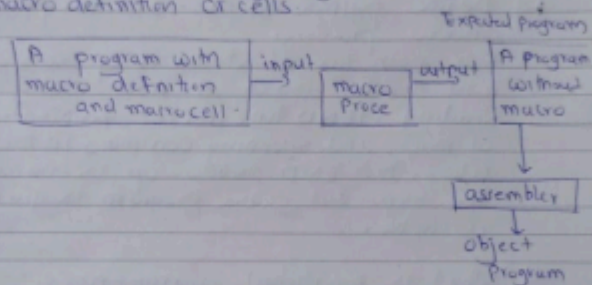 macro definition or cells.
Expected program
A program with
macro definition
and macrocell.
input
macro
Proce
output
A program
without
macro
assembler
object
Program